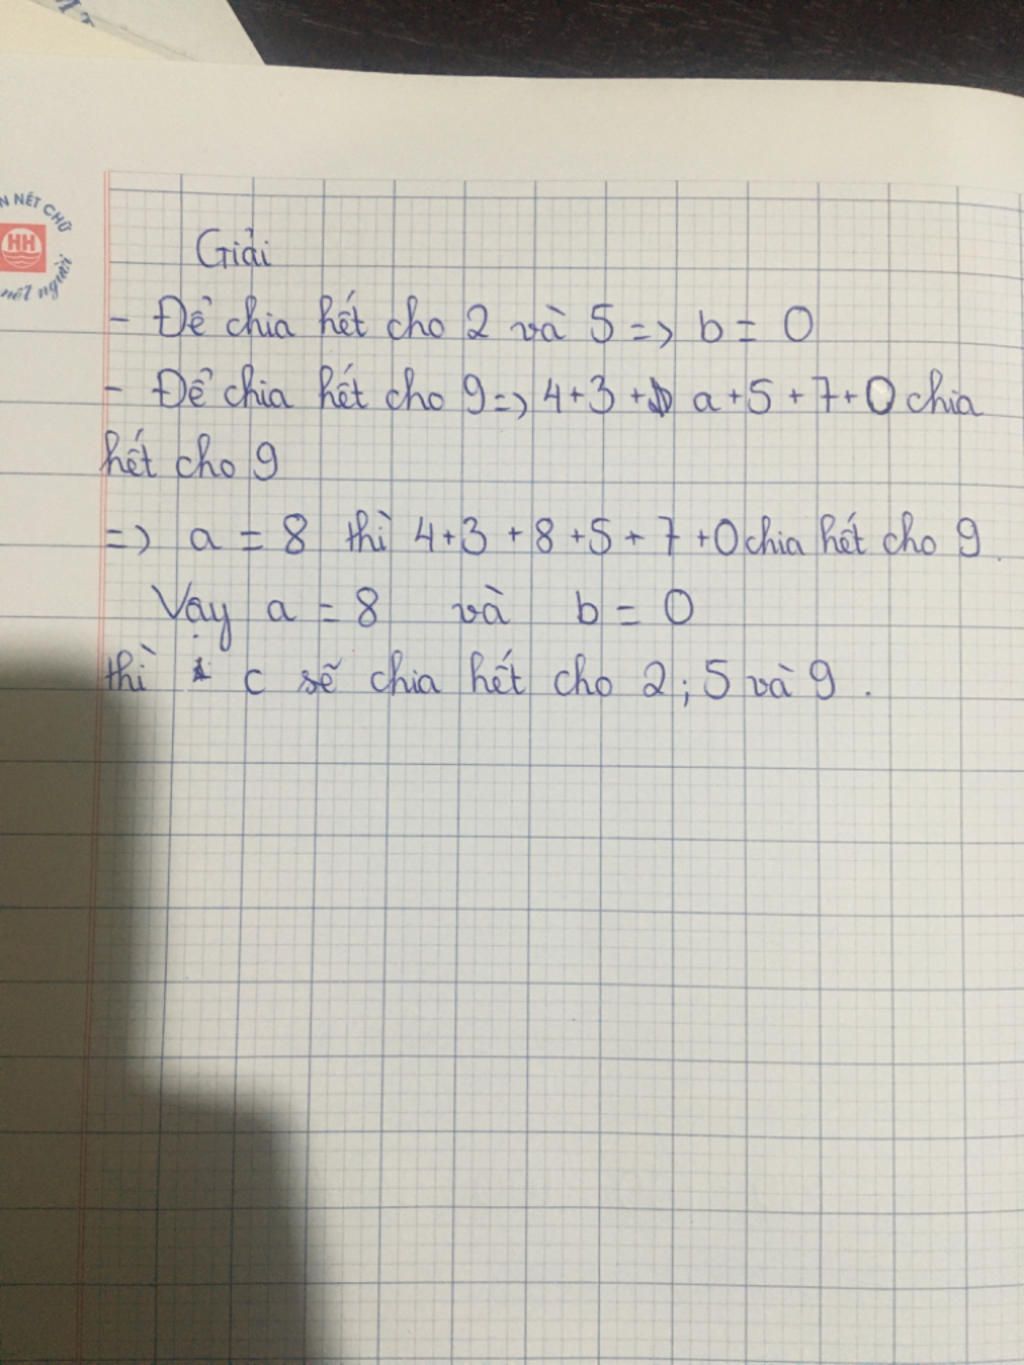 N NÉT CHỮ
HH
nét người
Giải
- Để chia hết cho 2 và 5 => b = 0
- Để chia hết cho 9 => 4+3 + a+5+7+0 chia
hết cho 9
=> a = 8 thì 4+3+8+5+7+0 chia hết cho 9.
Vậy a = 8 và b = 0
thì c sẽ chia hết cho 2; 5 và 9.